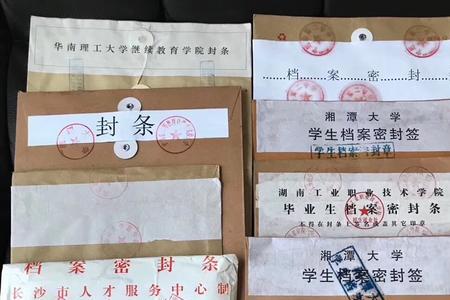 华南理工大学继续教育学院封条
封条
档案密封条
长沙市人才服务中心制
档案密封
湘潭大学
学生档案密封签
学生档案密封章
湖南工业职业技术学院
毕业生档案密封条
湘潭大学
学生档案密封签